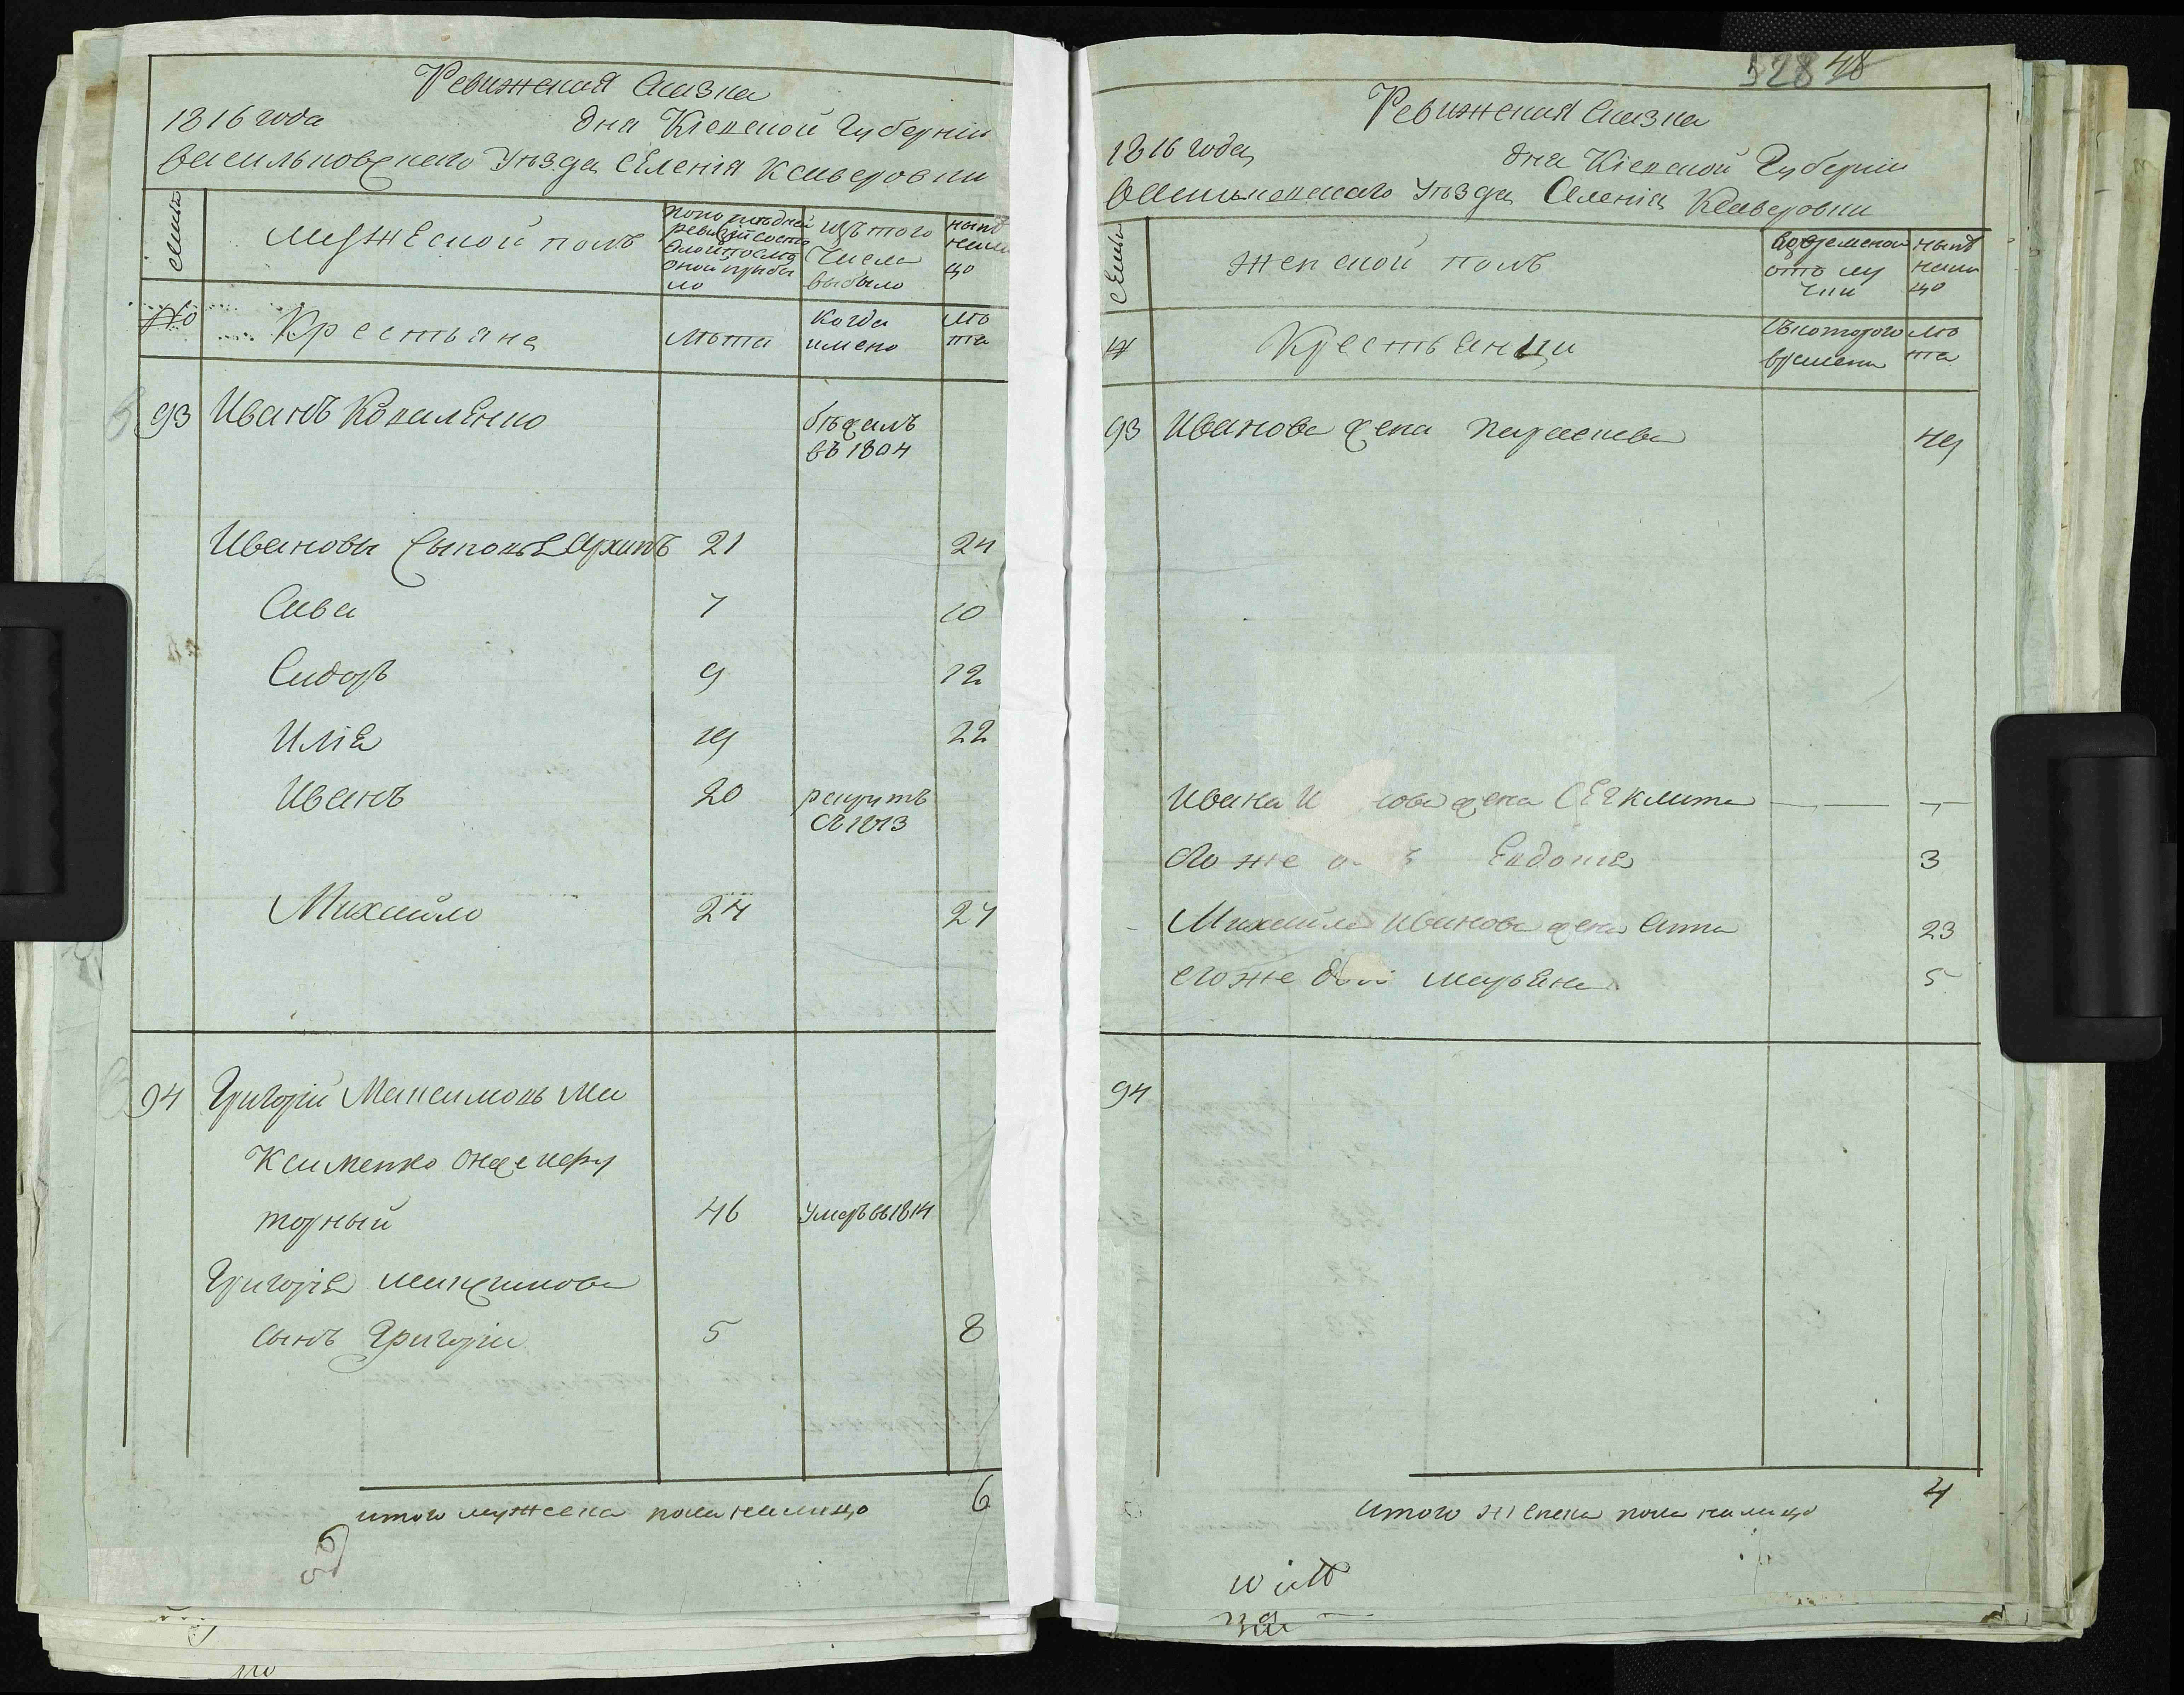 Ревижская Сказка
1816 года дня Кіевской Губерніи
Васильковского Уезда Селенія Ксаверовки
Семьи
Мужеской полъ
по последней ревизіи состояло и после оной прибыло
изъ того Числа выбыло
ныне налицо
№
Крестьяне
Лета
Когда имено
Лета
93 Иванъ Коваленко бежалъ въ 1804
Ивановы Сыновья Архипъ 21 24
Сава 7 10
Сидоръ 9 12
Илія 19 22
Иванъ 20 рекрутъ съ 1813
Михайло 24 27
94 Григорій Максимовъ Ма
Ксименко онже
торный 46 умеръ въ 1814
Григорія Максимова
сынъ Григорій 5 8
итого мужеска пола налицо 6
59
528 48
Ревижская Сказка
1816 года дня Кіевской Губерніи
Васильковскаго Уезда Селенія Ксаверовки
Семьи
Женской полъ
Во временой отлучки
ныне налицо
№
Крестьянки
Съ которого времени
Лета
93 Иванова жена Параскева 49
Ивана жена Феклита — —
его же Евдокія 3
Михайла Иванова жена Анна 23
его же Марьяна 5
94
итого женска пола налицо 4